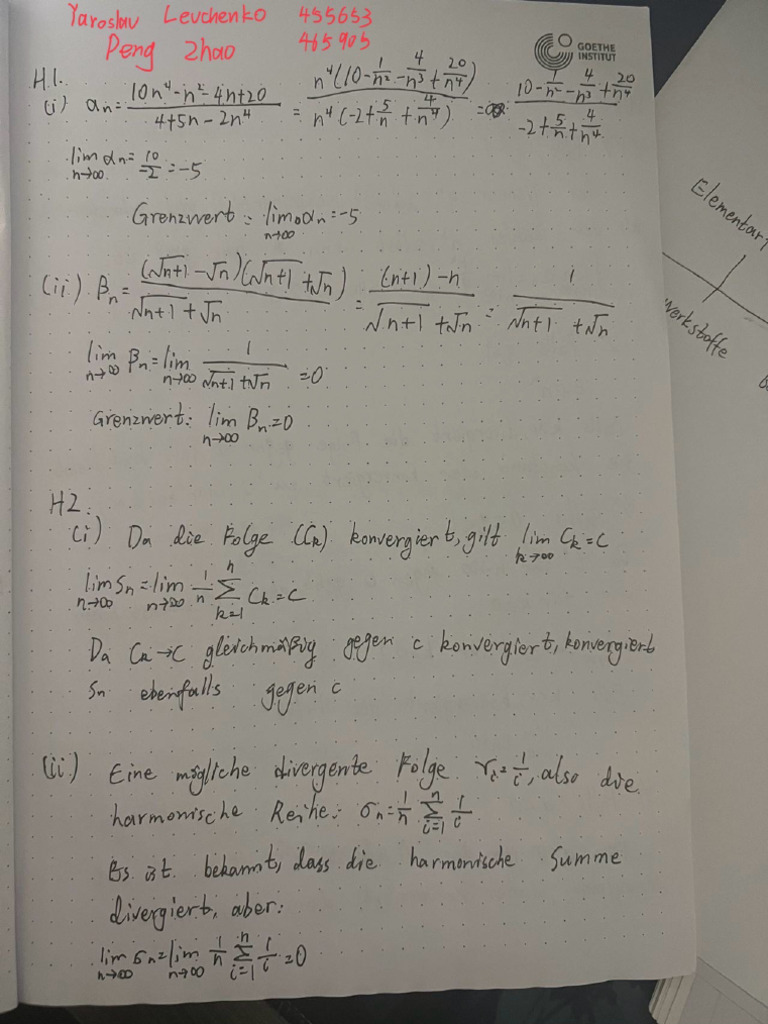 Yaroslav Levchenko 455653
Peng Zhao 465905
GOETHE
INSTITUT
H1.
(i) αn = (10n⁴-n²-4n+20)/(4+5n-2n⁴) = n⁴(10-1/n²-4/n³+20/n⁴)/n⁴(-2+5/n³+4/n⁴) = (10-1/n²-4/n³+20/n⁴)/(-2+5/n+4/n⁴)
lim n→∞ αn = 10/-2 = -5
Grenzwert: lim n→∞ αn = -5
(ii) βn = (√n+1 - √n)(√n+1 + √n)/(√n+1 + √n) = ((n+1)-n)/(√n+1 + √n) = 1/(√n+1 + √n)
lim n→∞ βn = lim n→∞ 1/(√n+1 + √n) = 0
Grenzwert: lim n→∞ βn = 0
H2.
(i) Da die Folge (Ck) konvergiert, gilt lim k→∞ Ck = C
lim n→∞ Sn = lim n→∞ 1/n ∑ k=1 n Ck = C
Da Ck→C gleichmäßig gegen c konvergiert, konvergiert
Sn ebenfalls gegen c
(ii) Eine mögliche divergente Folge ri = 1/i, also die
harmonische Reihe: σn = 1/n ∑ i=1 n 1/i
Es ist bekannt, dass die harmonische Summe
divergiert, aber:
lim n→∞ σn = lim n→∞ 1/n ∑ i=1 n 1/i = 0
werkstoffe